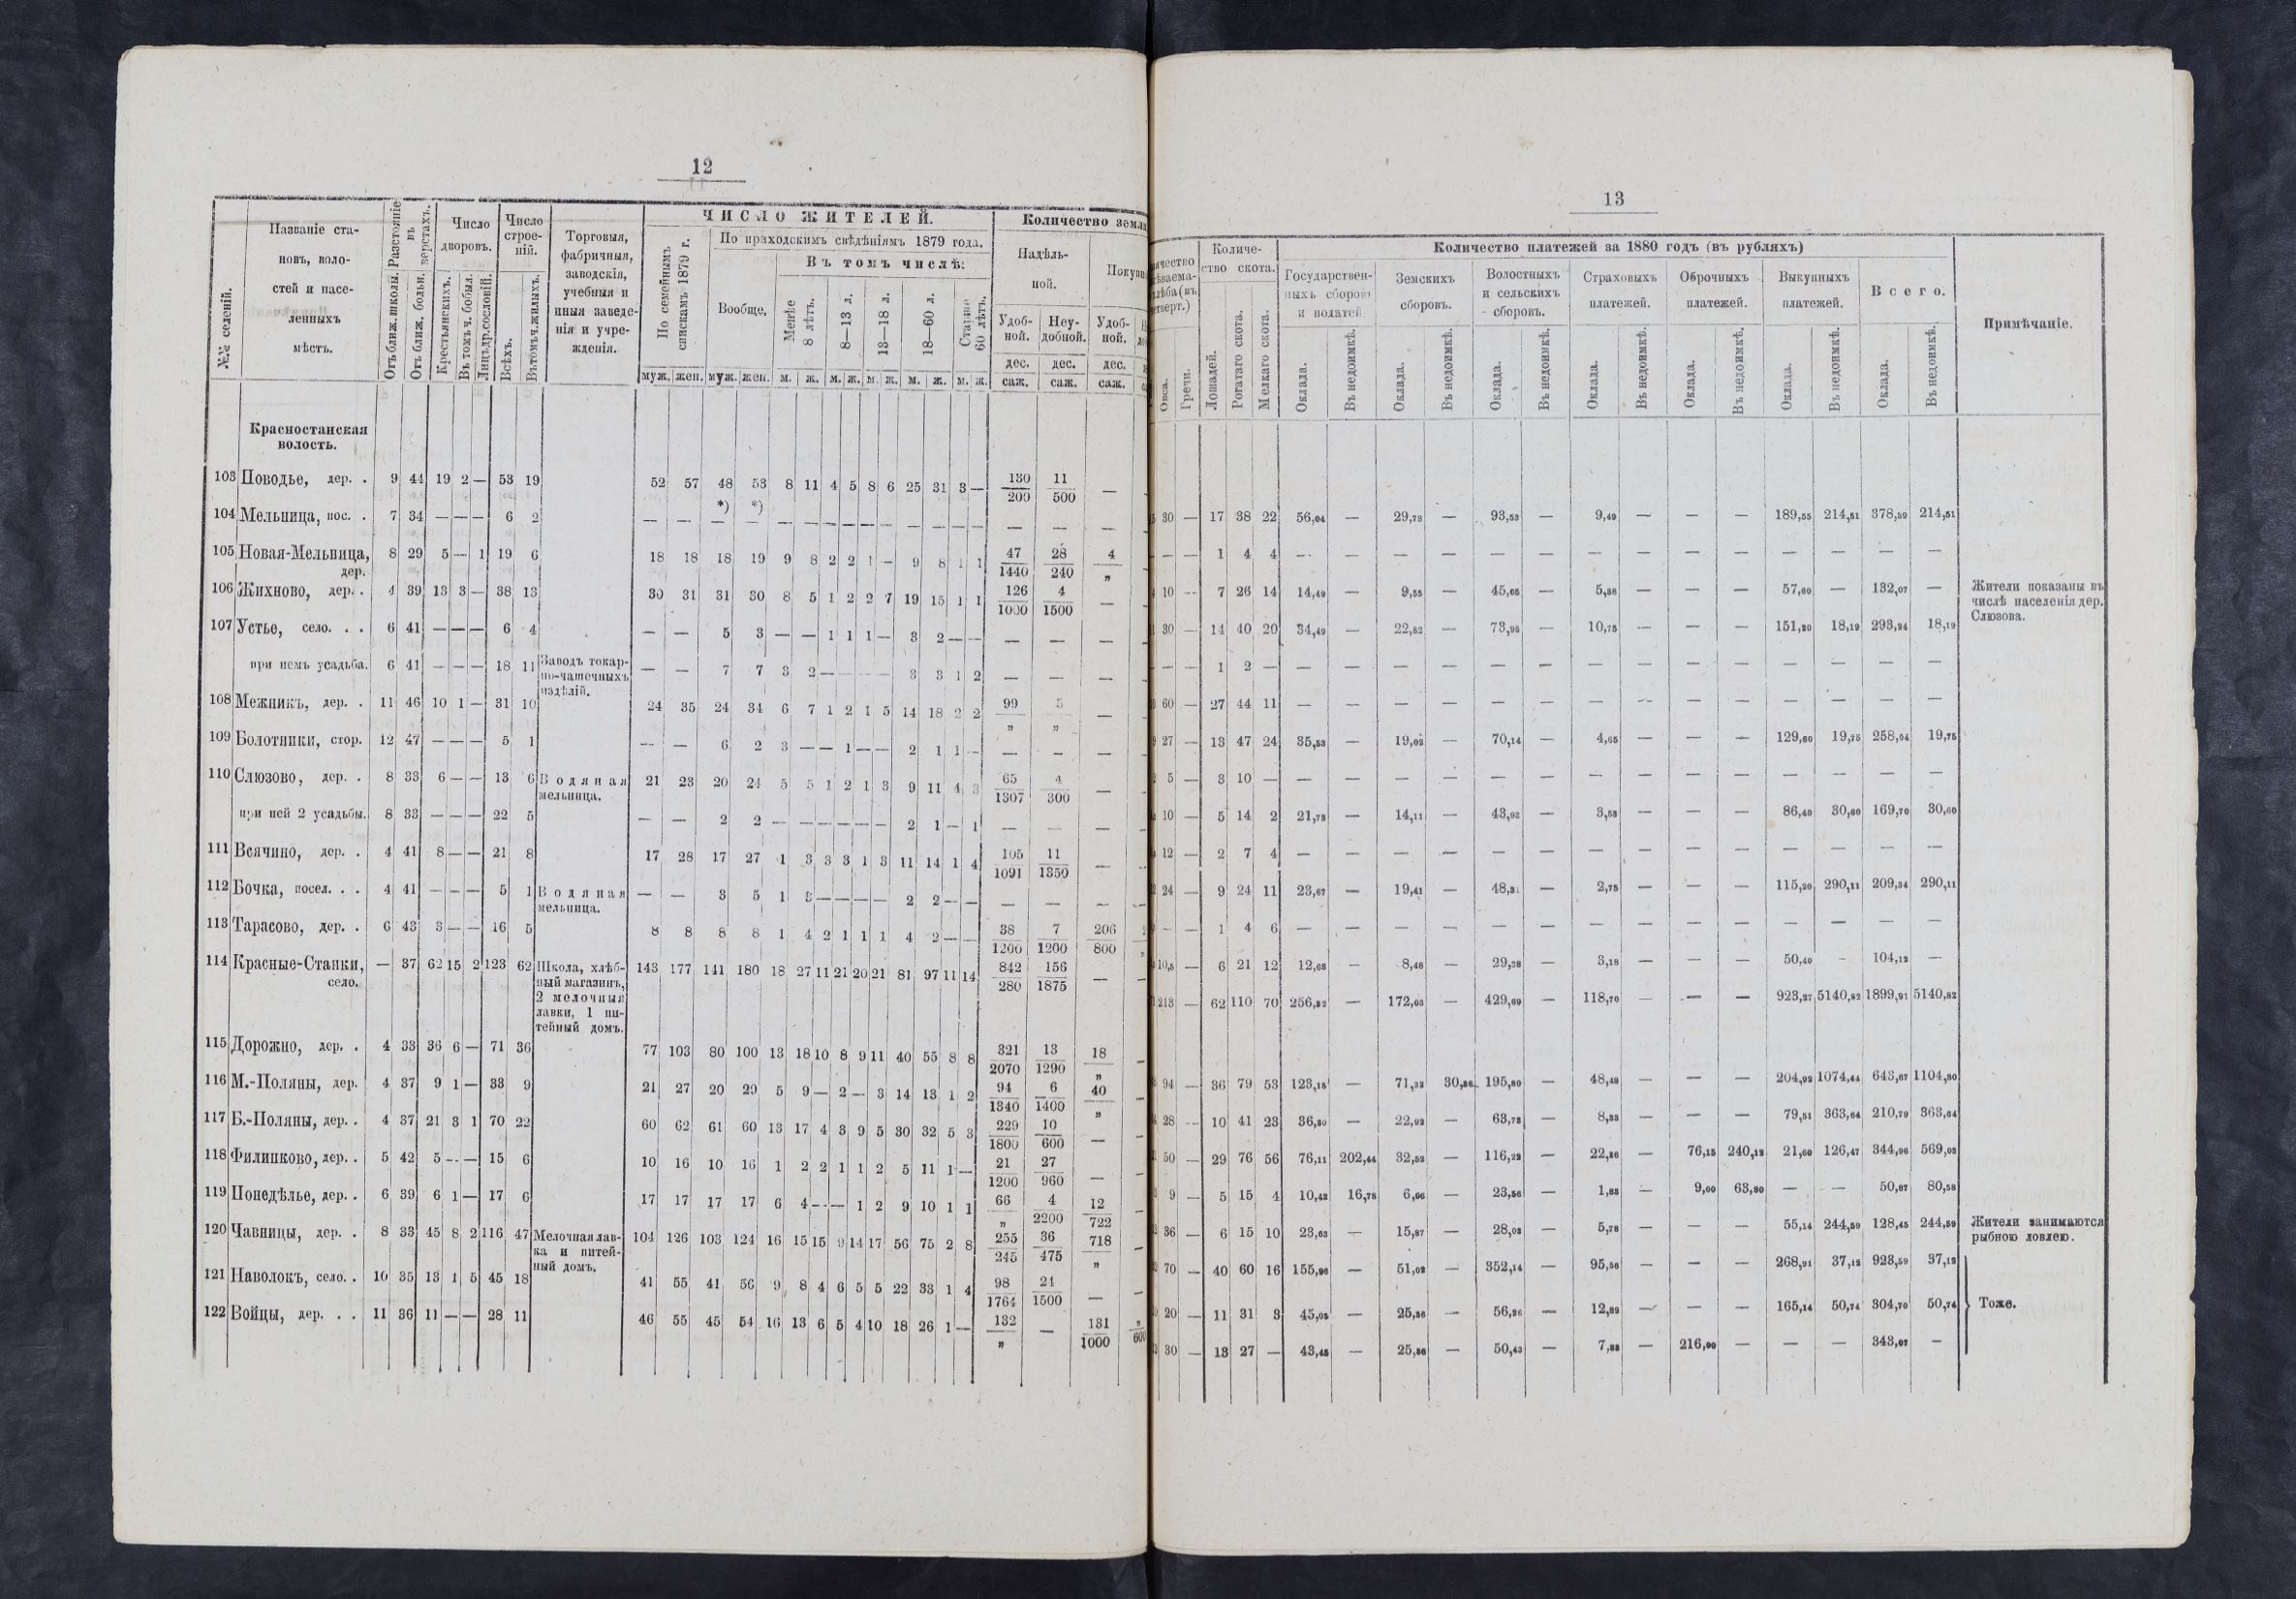 12
№№ селеній.
Названіе ста-
новъ, воло-
стей и насе-
ленныхъ
мѣстъ.
Разстояніе
въ
верстахъ.
Отъ ближ. школы.
Отъ ближ. больн.
Число
дворовъ.
Крестьянскихъ.
Въ томъ ч. бобыл.
Лицъ др. сословій.
Число
строе-
ній.
Всѣхъ.
Въ томъ ч. жилыхъ.
Торговыя,
фабричныя,
заводскія,
учебныя и
иныя заведе-
нія и учре-
жденія.
ЧИСЛО ЖИТЕЛЕЙ.
По семейнымъ
спискамъ 1879 г.
По приходскимъ свѣдѣніямъ 1879 года.
Вообще.
Въ томъ числѣ:
Менѣе
8 лѣтъ.
8—13 л.
13—18 л.
18—60 л.
Старше
60 лѣтъ.
муж. жен. муж. жен. м. ж. м. ж. м. ж. м. ж. м. ж.
Количество земли
Надѣль-
ной.
Удоб-
ной.
Неу-
добной.
Удоб-
ной.
дес. дес. дес.
саж. саж. саж.
Красностанская
волость.
103 Поводье, дер. . 9 44 19 2 — 53 19 52 57 48 53 8 11 4 5 8 6 25 31 3 — 130/200 11/500 —
*) *)
104 Мельница, пос. . 7 34 — — — 6 2 — — — — — — — — — — — — — — — — —
105 Новая-Мельница, 8 29 5 — 1 19 6 18 18 18 19 9 8 2 2 1 — 9 8 1 1 47/1440 28/240 4/„
дер.
106 Жихново, дер. . 4 39 13 3 — 38 13 30 31 31 30 8 5 1 2 2 7 19 15 1 1 126/1000 4/1500 —
107 Устье, село. . . 6 41 — — — 6 4 — — 5 3 — — 1 1 1 — 3 2 — — — — —
при немъ усадьба. 6 41 — — — 18 11 Заводъ токар-
но-чашечныхъ
издѣлій. — — 7 7 3 2 — — — — 3 3 1 2 — — —
108 Межникъ, дер. . 11 46 10 1 — 31 10 24 35 24 34 6 7 1 2 1 5 14 18 2 2 99/„ 5/„ —
109 Болотники, стор. 12 47 — — — 5 1 — — 6 2 3 — — 1 — — 2 1 1 — — — —
110 Слюзово, дер. . 8 33 6 — — 13 6 Водяная
мельница. 21 23 20 24 5 5 1 2 1 3 9 11 4 3 65/1307 4/300 —
при ней 2 усадьбы. 8 33 — — — 22 5 — — 2 2 — — — — — — 2 1 — 1 — — —
111 Всячино, дер. . 4 41 8 — — 21 8 17 28 17 27 1 3 3 3 1 3 11 14 1 4 105/1091 11/1350 —
112 Бочка, посел. . . 4 41 — — — 5 1 Водяная
мельница. — — 3 5 1 3 — — — — 2 2 — — — — —
113 Тарасово, дер. . 6 43 3 — — 16 5 8 8 8 8 1 4 2 1 1 1 4 2 — — 38/1200 7/1200 206/800
114 Красные-Станки, — 37 62 15 2 123 62 Школа, хлѣб-
ный магазинъ,
2 мелочныя
лавки, 1 пи-
тейный домъ. 143 177 141 180 18 27 11 21 20 21 81 97 11 14 842/280 156/1875 —
село.
115 Дорожно, дер. . 4 33 36 6 — 71 36 77 103 80 100 13 18 10 8 9 11 40 55 8 8 321/2070 13/1290 18/„
116 М.-Поляны, дер. 4 37 9 1 — 33 9 21 27 20 29 5 9 — 2 — 3 14 13 1 2 94/1340 6/1400 40/„
117 Б.-Поляны, дер. . 4 37 21 3 1 70 22 60 62 61 60 13 17 4 3 9 5 30 32 5 3 229/1800 10/600 —
118 Филипково, дер. . 5 42 5 — — 15 6 10 16 10 16 1 2 2 1 1 2 5 11 1 — 21/1200 27/960 —
119 Понедѣлье, дер. . 6 39 6 1 — 17 6 17 17 17 17 6 4 — — 1 2 9 10 1 1 66/„ 4/2200 12/722
120 Чавницы, дер. . 8 33 45 8 2 116 47 Мелочная лав-
ка и питей-
ный домъ. 104 126 103 124 16 15 15 9 14 17 56 75 2 8 255/245 36/475 718/„
121 Наволокъ, село. . 10 35 13 1 5 45 18 41 55 41 56 9 8 4 6 5 5 22 33 1 4 98/1764 21/1500 —
122 Войцы, дер. . . 11 36 11 — — 28 11 46 55 45 54 16 13 6 5 4 10 18 26 1 — 132/„ — 131/1000
13
Овса.
Гречи.
Количе-
ство скота.
Лошадей.
Рогатаго скота.
Мелкаго скота.
Количество платежей за 1880 годъ (въ рубляхъ)
Государствен-
ныхъ сборовъ
и податей.
Земскихъ
сборовъ.
Волостныхъ
и сельскихъ
сборовъ.
Страховыхъ
платежей.
Оброчныхъ
платежей.
Выкупныхъ
платежей.
Всего.
Оклада. Въ недоимкѣ. Оклада. Въ недоимкѣ. Оклада. Въ недоимкѣ. Оклада. Въ недоимкѣ. Оклада. Въ недоимкѣ. Оклада. Въ недоимкѣ. Оклада. Въ недоимкѣ.
Примѣчаніе.
30 — 17 38 22 56,04 — 29,78 — 93,53 — 9,49 — — — 189,55 214,51 378,39 214,51
— — 1 4 4 — — — — — — — — — — — — — —
10 — 7 26 14 14,49 — 9,55 — 45,05 — 5,38 — — — 57,60 — 132,07 — Жители показаны въ
числѣ населенія дер.
Слюзова.
30 — 14 40 20 34,49 — 22,82 — 73,98 — 10,75 — — — 151,20 18,19 293,24 18,19
— — 1 2 — — — — — — — — — — — — — — —
60 — 27 44 11 — — — — — — — — — — — — — —
27 — 13 47 24 35,53 — 19,02 — 70,14 — 4,65 — — — 129,60 19,75 258,94 19,75
5 — 3 10 — — — — — — — — — — — — — — —
10 — 5 14 2 21,73 — 14,11 — 43,93 — 3,53 — — — 86,40 30,60 169,70 30,60
12 — 2 7 4 — — — — — — — — — — — — — —
24 — 9 24 11 23,67 — 19,41 — 48,31 — 2,75 — — — 115,20 290,11 209,34 290,11
— — 1 4 6 — — — — — — — — — — — — — —
10,5 — 6 21 12 12,68 — 8,48 — 29,38 — 3,18 — — — 50,40 — 104,12 —
213 — 62 110 70 256,32 — 172,03 — 429,69 — 118,70 — — — 923,27 5140,82 1899,91 5140,82
94 — 36 79 53 123,15 — 71,32 30,36 195,80 — 48,48 — — — 204,92 1074,44 643,67 1104,80
28 — 10 41 23 36,30 — 22,92 — 63,73 — 8,33 — — — 79,51 363,64 210,79 363,64
50 — 29 76 56 76,11 202,44 32,52 — 116,22 — 22,36 — 76,15 240,12 21,60 126,47 344,96 569,03
9 — 5 15 4 10,42 16,78 6,06 — 23,56 — 1,83 — 9,00 63,80 — — 50,87 80,58
36 — 6 15 10 23,63 — 15,87 — 28,03 — 5,78 — — — 55,14 244,59 128,45 244,59 Жители занимаются
рыбною ловлею.
70 — 40 60 16 155,96 — 51,02 — 352,14 — 95,56 — — — 268,91 37,12 923,59 37,12
20 — 11 31 3 45,05 — 25,36 — 56,26 — 12,89 — — — 165,14 50,74 304,70 50,74 Тоже.
30 — 13 27 — 43,45 — 25,36 — 50,43 — 7,83 — 216,00 — — — 343,07 —